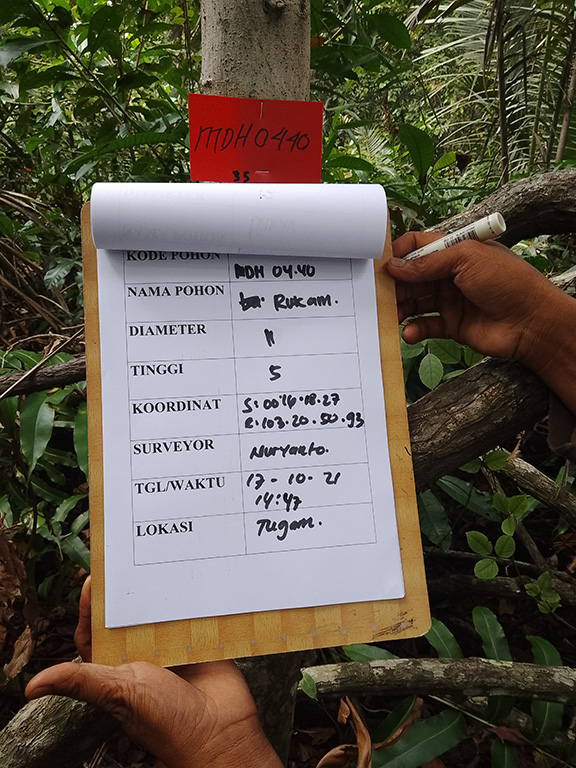 MDH0440
35
KODE POHON MDH 04.40
NAMA POHON Rukam.
DIAMETER 11
TINGGI 5
KOORDINAT S:00
E:103.20.50.93
SURVEYOR Nuryanto.
TGL/WAKTU 17-10-21
14:47
LOKASI Tugam.